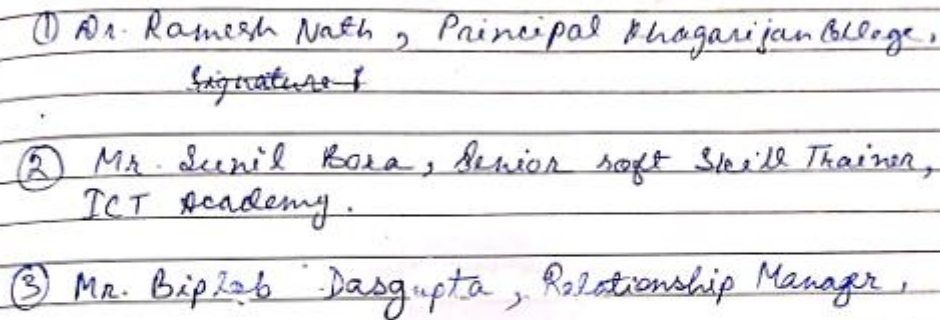 ① Dr. Ramesh Nath, Principal Khagarijan College.
Signature
② Mr. Sunil Bora, Senior soft Skill Trainer,
ICT Academy.
③ Mr. Biplab Dasgupta, Relationship Manager,